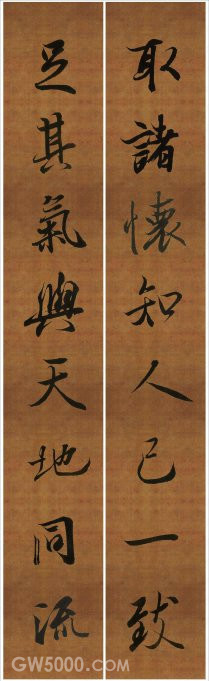 取諸懷知人己一致
足其氣與天地同流
GW5000.com